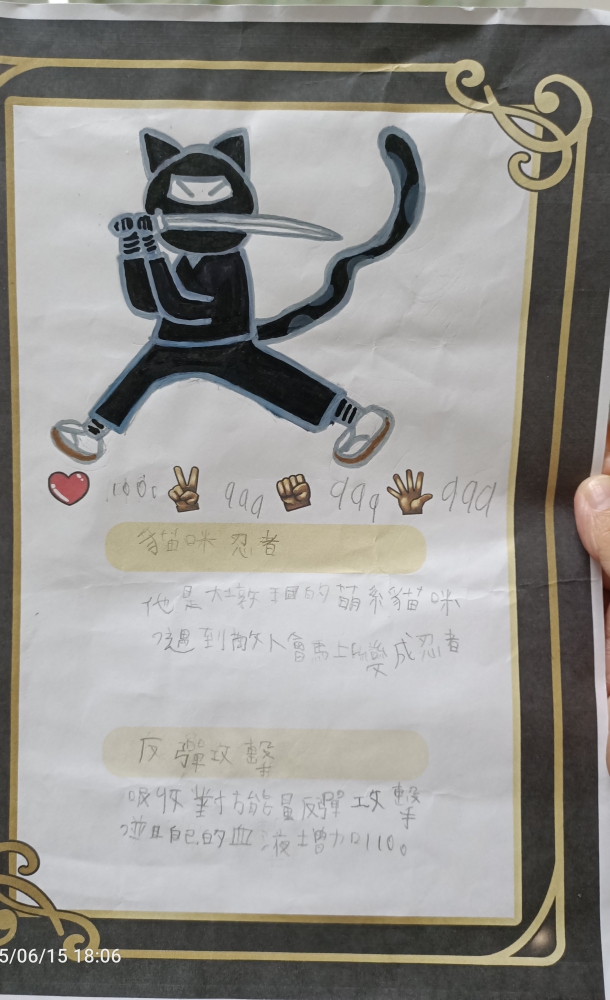 1000 999 999 999
貓咪忍者
他是大敦 的萌系貓咪
遇到敵人會馬上變成忍者
反彈攻擊
吸收對方能量反彈攻擊
並且自己的血液增加110。
5/06/15 18:06